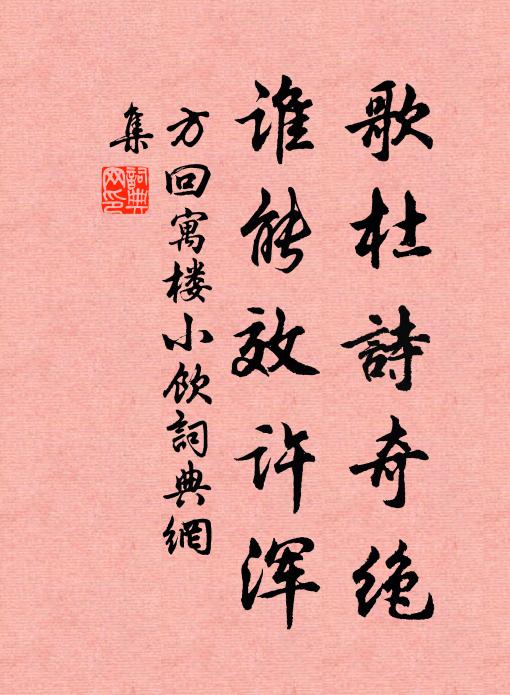 歌杜詩奇绝
谁能效许浑
方回寓楼小饮詞典網
集
詞典
网印